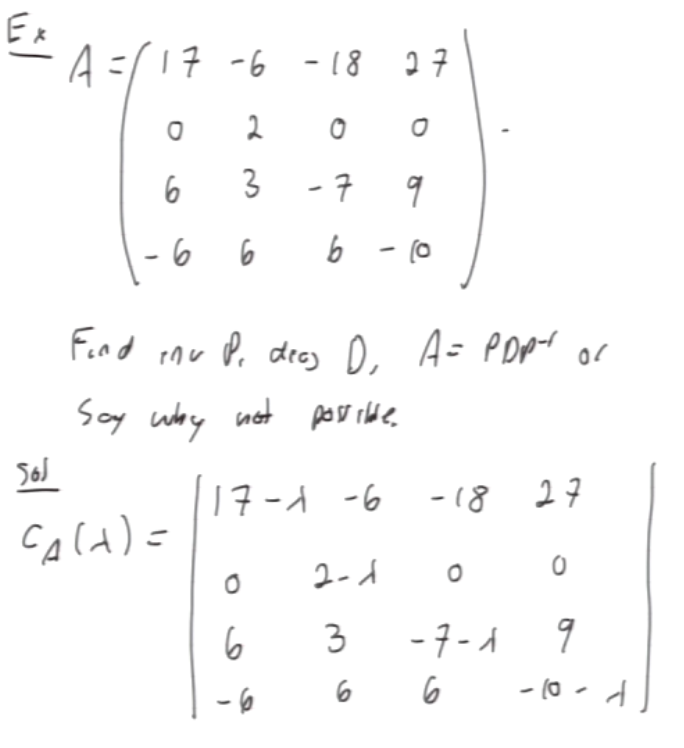 Ex
A = ( 17 -6 -18 27
0 2 0 0 .
6 3 -7 9
-6 6 6 -10 )
Find inv P, diag D, A = PDP⁻¹ or
Say why not possible.
Sol
C_A(λ) = | 17-λ -6 -18 27
0 2-λ 0 0
6 3 -7-λ 9
-6 6 6 -10-λ |